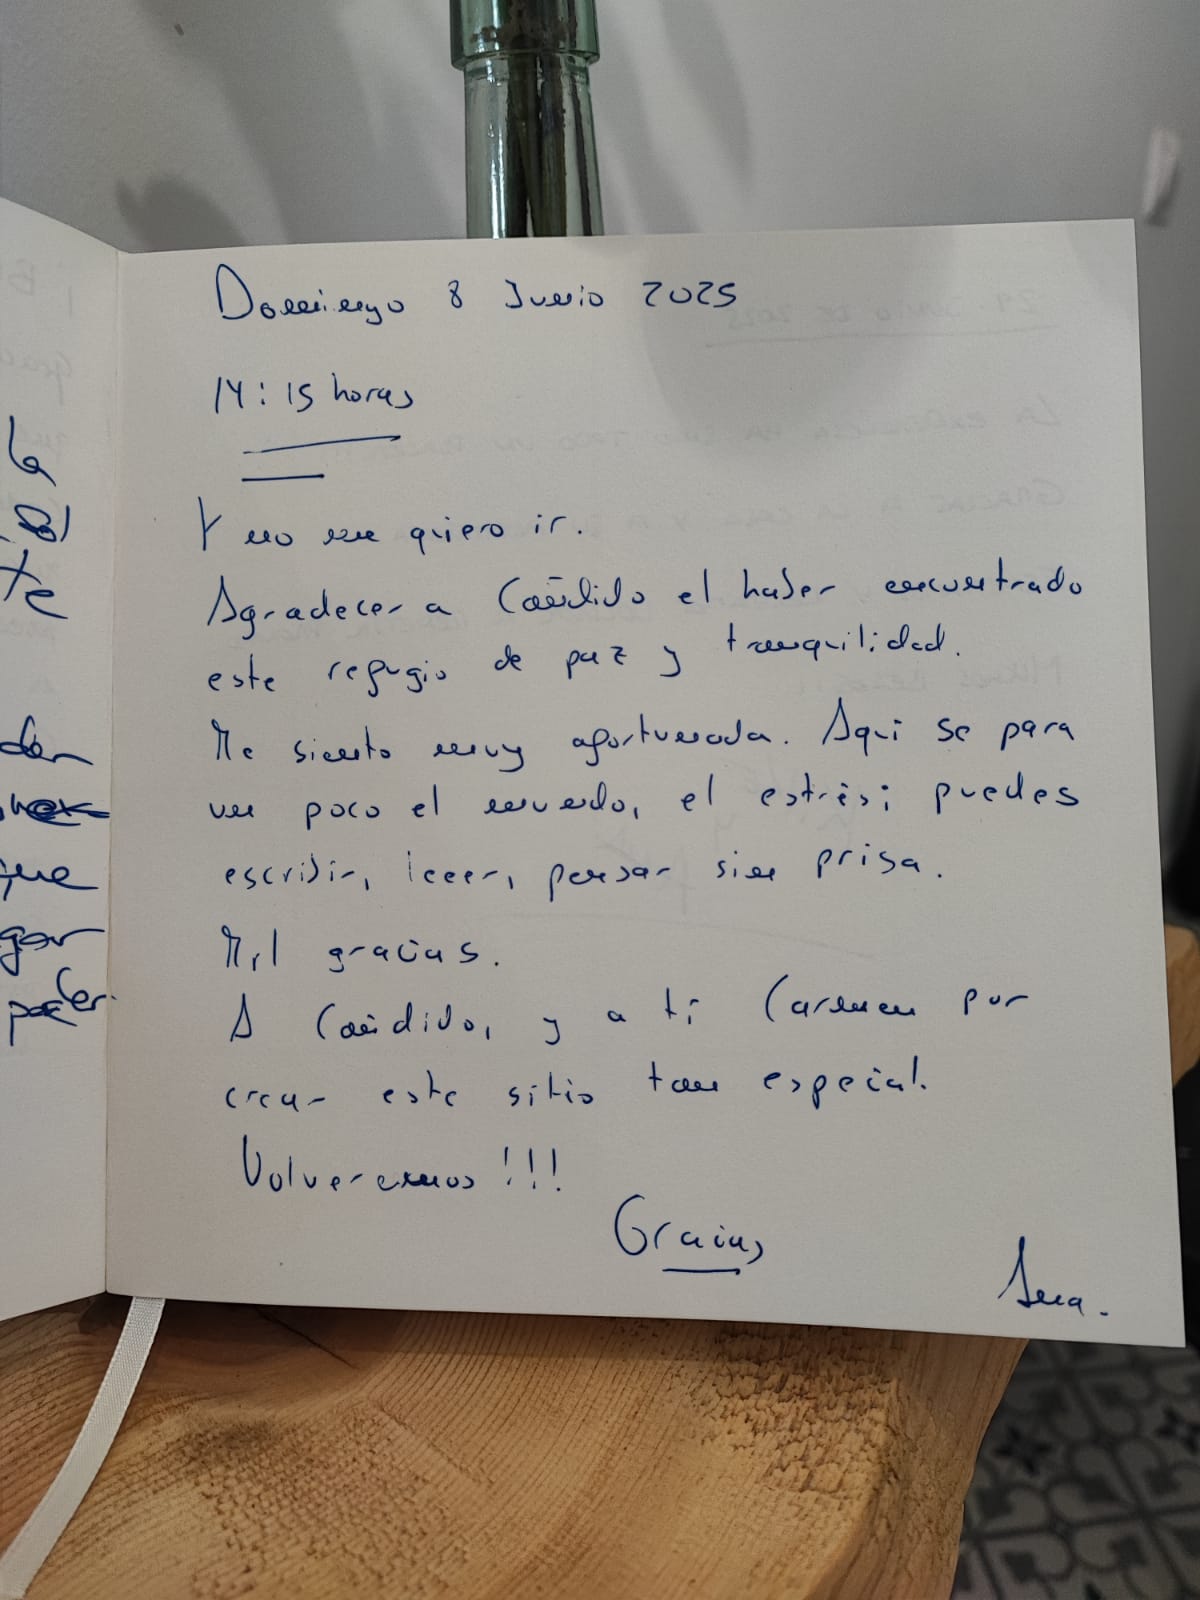 la
te
Domingo 8 Junio 2025
14:15 horas
Y no me quiero ir.
Agradecer a Cándido el haber encontrado
este refugio de paz y tranquilidad.
Me siento muy afortunada. Aquí se para
un poco el mundo, el estrés; puedes
escribir, leeer, pensar sin prisa.
Mil gracias.
A Cándido, y a ti Carmen por
crear este sitio tan especial.
Volveremos!!!
Gracias
Ana.